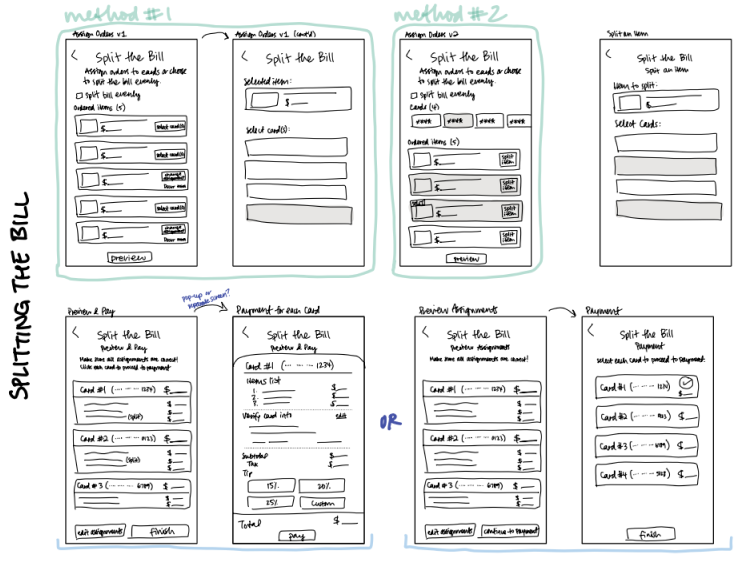 method #1
method #2
SPLITTING THE BILL
Assign Orders v1
Split the Bill
Assign orders to cards or choose
to split the bill evenly.
split bill evenly
Ordered items (5)
$
select card(s)
$
select card(s)
$
change
$
select card(s)
$
change
preview
Assign Orders v1 (cont'd)
Split the Bill
Selected item:
$
Select card(s):
Assign Orders v2
Split the Bill
Assign orders to cards or choose
to split the bill evenly.
split bill evenly
Cards (4)
Ordered items (5)
$
split
item
$
split
item
$
split
item
$
split
item
preview
Split an Item
Split the Bill
Split an item
Item to split:
$
Select Cards:
Preview & Pay
Split the Bill
Preview & Pay
Make sure all assignments are correct!
Click each card to proceed to payment
Card #1 (... ... ... 1234) $
$
(split) $
$
Card #2 (... ... ... 0123) $
$
(split) $
$
Card #3 (... ... ... 6789) $
$
$
edit assignments
finish
pop-up or
separate screen?
Payment for each Card
Split the Bill
Preview & Pay
Card #1 (... ... ... 1234)
Items list
1. $
2. $
3. $
Verify card info
edit
Subtotal $
Tax $
Tip
15%
20%
25%
Custom
Total $
pay
OR
Preview Assignments
Split the Bill
Preview Assignments
Make sure all assignments are correct!
Card #1 (... ... ... 1234) $
$
$
$
Card #2 (... ... ... 0123) $
$
$
$
Card #3 (... ... ... 6789) $
$
$
edit assignments
continue to payment
Payment
Split the Bill
Payment
Select each card to proceed to payment.
Card #1 (... ... ... 1234)
$
Card #2 (... ... ... 0123) $
Card #3 (... ... ... 6789) $
Card #4 $
finish